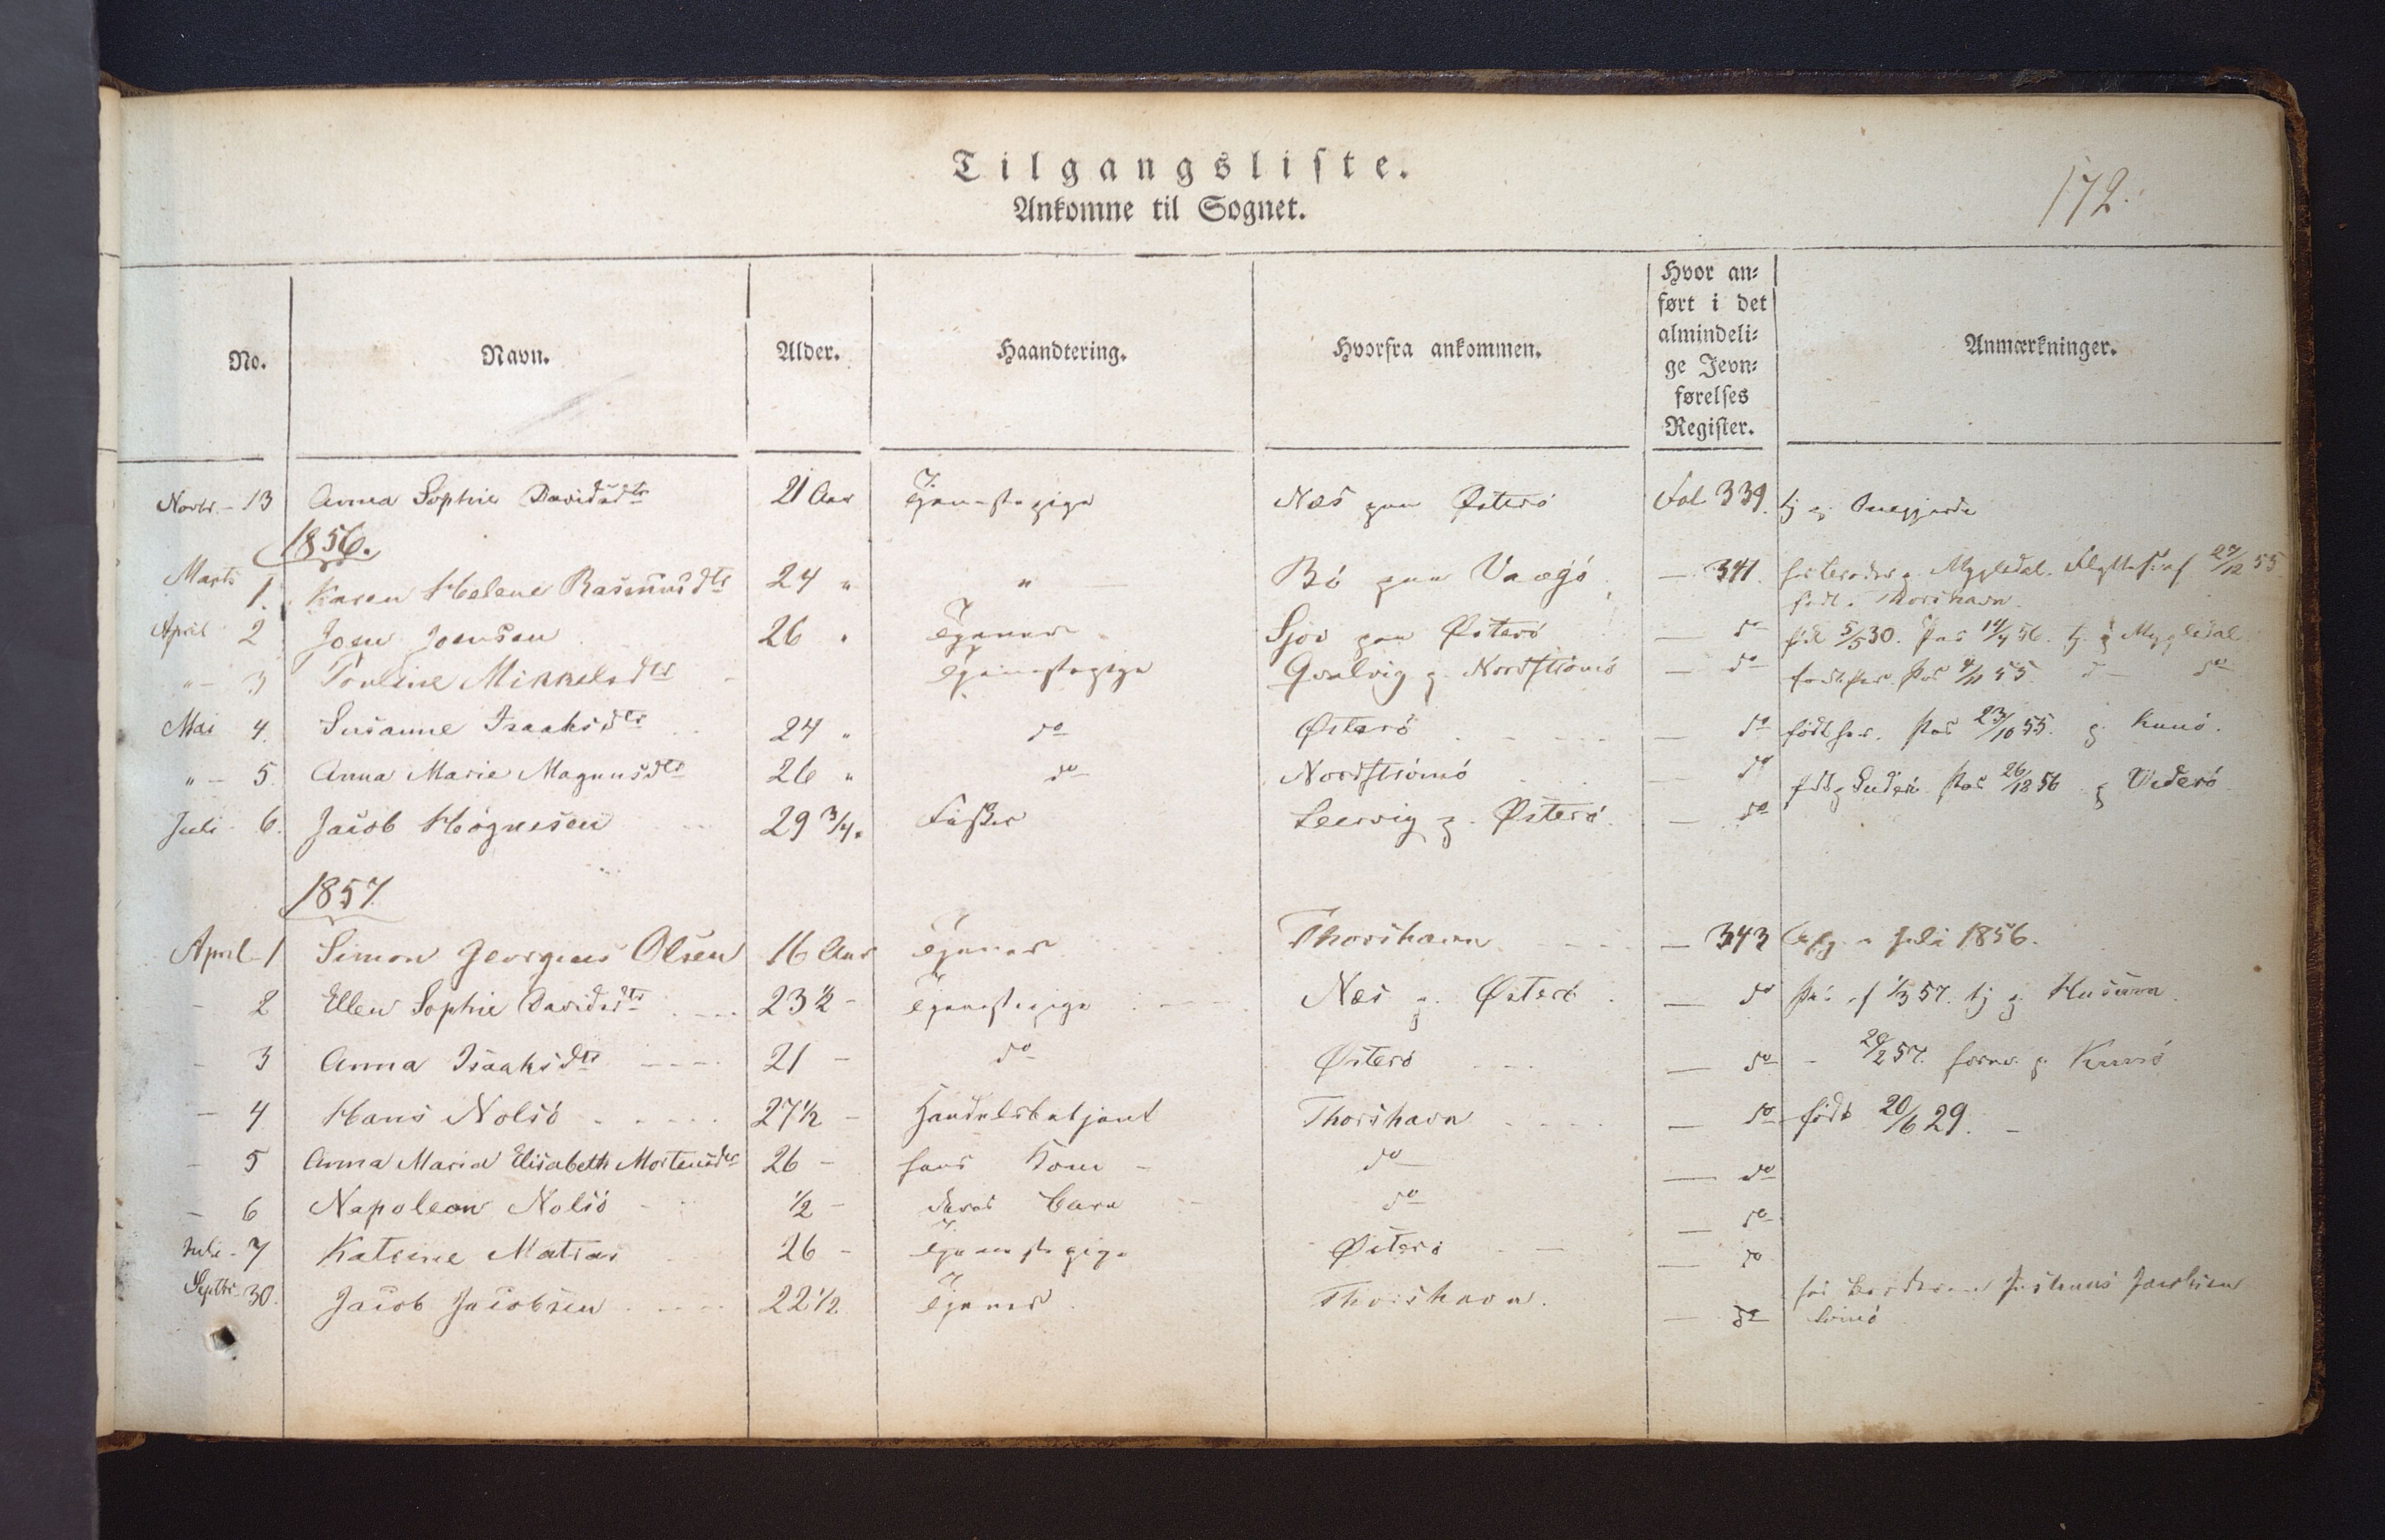 Tilgangsliste.
Ankomne til Sognet.
172.
No. Navn. Alder. Haandtering. Hvorfra ankommen. Hvor anført i det almindelige Jevnførelses Register. Anmærkninger.
Novbr. - 13 Anna Sophie Davidsdtr 21 Aar Tjenestepige Næs paa Østerö Fol. 339. tj. p.
1856.
Marts 1. Karen Helene Rasmusdtr 24 " " Bö paa Vaagö — 341. Mygledal. 29/12 55
Thorshavn.
April 2 Joen Joensen 26 " Tjener Sjov paa Østerö — do född 5/5 30. Pas 14/4 56. tj. p Mygledal
" - 3 Pouline Mikkelsdtr - Tjenestepige Qvalvig p. Nordströmö — do Pas 4/11 55. do
Mai 4. Susanne Isaksdtr 24 " do Österö — do född her. Pas 23/10 55. p. Kunö.
" - 5. Anna Marie Magnusdtr 26 " do Nordströmö — do Pas 26/12 56 p Viderö
Juli 6. Jacob Högnesen 29 3/4 " Fisker Leervig p. Österö. — do
1857
April - 1 Simon Georgius Olsen 16 Aar Tjener Thorshavn — 343 Juli 1856.
- 2 Ellen Sophie Davidsdtr 23 1/2 - Tjenestepige Næs p. Österö — do Pas af 1/3 57. tj p. Husum.
- 3 Anna Isaaksdtr 21 - do Österö — do - 2/2 57. p. Kunö
- 4 Hans Nolsö 27 1/2 - Handelsbetjent Thorshavn — do född 20/6 29. -
- 5 Anna Maria Elisabeth Mortensdtr 26 - hans Kone - do — do
- 6 Napoleon Nolsö 1/2 - deres Barn do — do
Juli - 7 Katrine Matras 26 - Tjenestepige Österö — do
Septbr - 30. Jacob Jacobsen 22 1/2 Tjener Thorshavn. — do hos Jacobsen